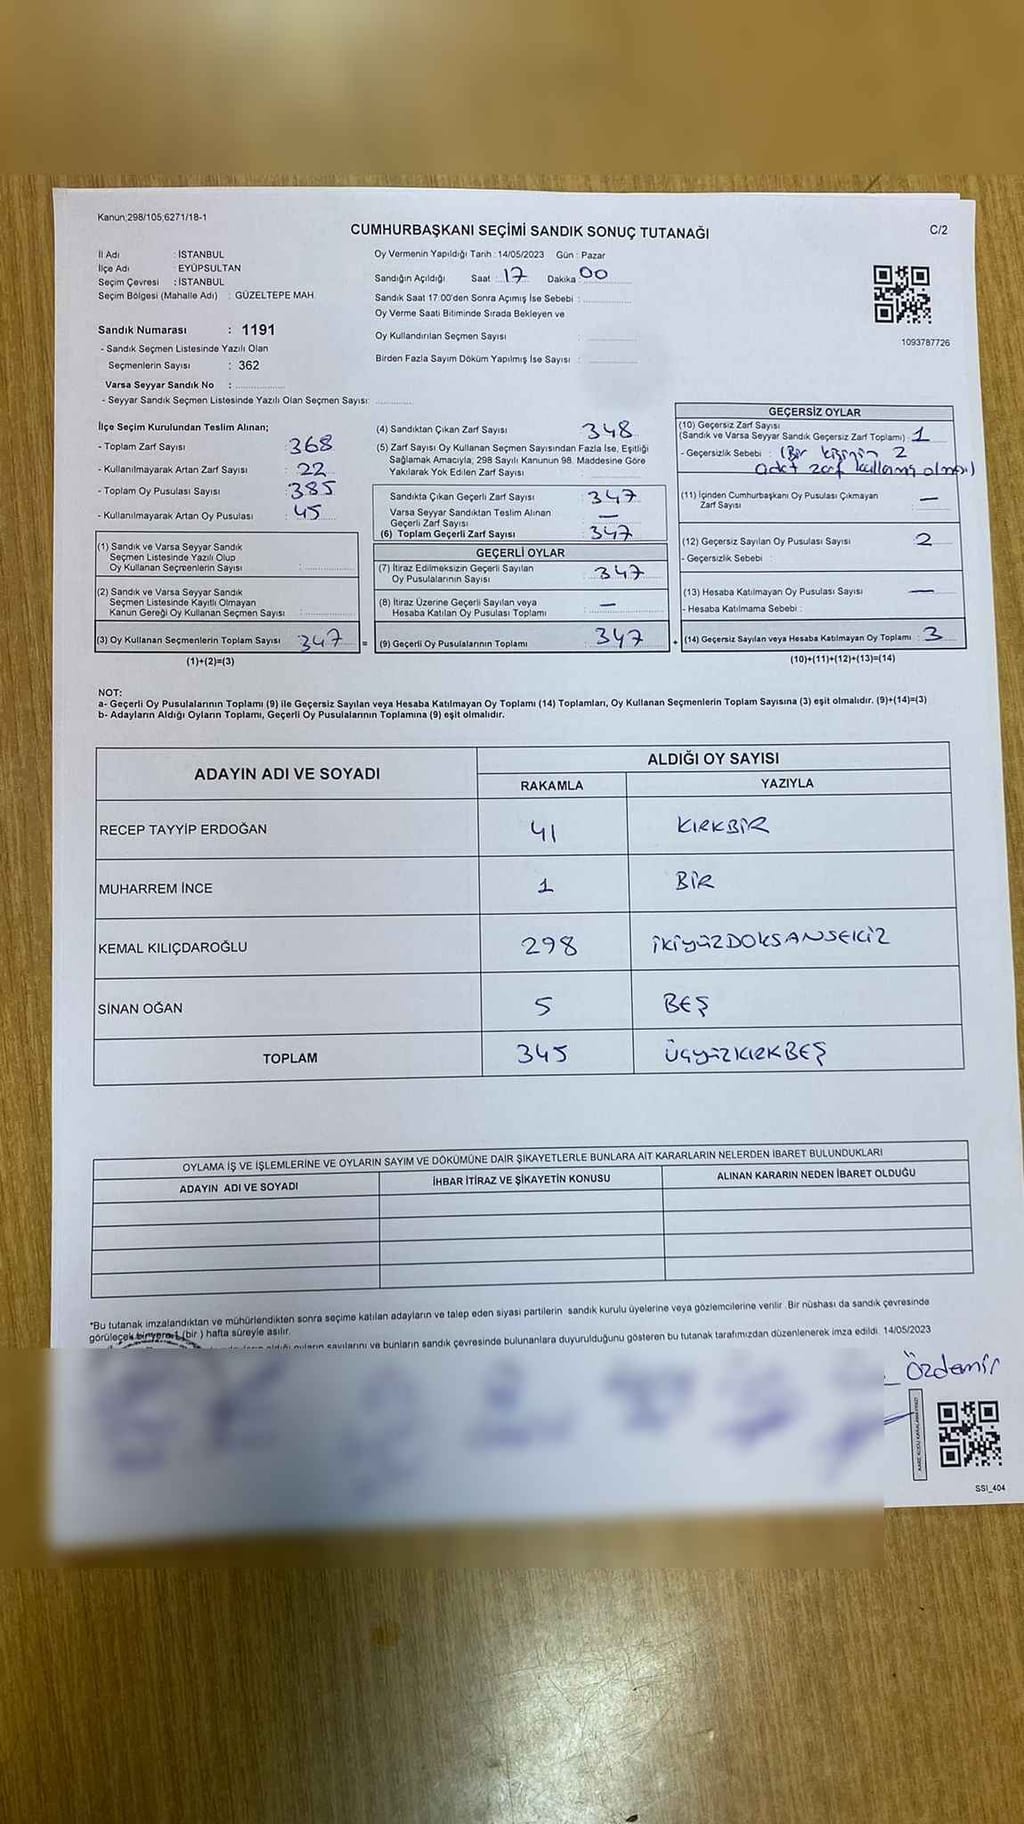 Kanun;298/105,6271/18-1
CUMHURBAŞKANI SEÇİMİ SANDIK SONUÇ TUTANAĞI
C/2
İl Adı : İSTANBUL
İlçe Adı : EYÜPSULTAN
Seçim Çevresi : İSTANBUL
Seçim Bölgesi (Mahalle Adı) : GÜZELTEPE MAH.
Sandık Numarası : 1191
- Sandık Seçmen Listesinde Yazılı Olan
Seçmenlerin Sayısı : 362
Varsa Seyyar Sandık No :
- Seyyar Sandık Seçmen Listesinde Yazılı Olan Seçmen Sayısı:
Oy Vermenin Yapıldığı Tarih : 14/05/2023 Gün : Pazar
Sandığın Açıldığı Saat : 17 Dakika : 00
Sandık Saat 17:00'den Sonra Açımış İse Sebebi :
Oy Verme Saati Bitiminde Sırada Bekleyen ve
Oy Kullandırılan Seçmen Sayısı :
Birden Fazla Sayım Döküm Yapılmış İse Sayısı :
1093787726
İlçe Seçim Kurulundan Teslim Alınan;
- Toplam Zarf Sayısı : 368
- Kullanılmayarak Artan Zarf Sayısı : 22
- Toplam Oy Pusulası Sayısı : 385
- Kullanılmayarak Artan Oy Pusulası : 45
(1) Sandık ve Varsa Seyyar Sandık
Seçmen Listesinde Yazılı Olup
Oy Kullanan Seçmenlerin Sayısı :
(2) Sandık ve Varsa Seyyar Sandık
Seçmen Listesinde Kayıtlı Olmayan
Kanun Gereği Oy Kullanan Seçmen Sayısı :
(3) Oy Kullanan Seçmenlerin Toplam Sayısı : 347 =
(1)+(2)=(3)
(4) Sandıktan Çıkan Zarf Sayısı : 348
(5) Zarf Sayısı Oy Kullanan Seçmen Sayısından Fazla İse, Eşitliği
Sağlamak Amacıyla; 298 Sayılı Kanunun 98. Maddesine Göre
Yakılarak Yok Edilen Zarf Sayısı :
Sandıkta Çıkan Geçerli Zarf Sayısı : 347
Varsa Seyyar Sandıktan Teslim Alınan
Geçerli Zarf Sayısı : —
(6) Toplam Geçerli Zarf Sayısı : 347
GEÇERLİ OYLAR
(7) İtiraz Edilmeksizin Geçerli Sayılan
Oy Pusulalarının Sayısı : 347
(8) İtiraz Üzerine Geçerli Sayılan veya
Hesaba Katılan Oy Pusulası Toplamı : —
(9) Geçerli Oy Pusulalarının Toplamı : 347 +
GEÇERSİZ OYLAR
(10) Geçersiz Zarf Sayısı
(Sandık ve Varsa Seyyar Sandık Geçersiz Zarf Toplamı) : 1
- Geçersizlik Sebebi : (Bir kişinin 2
adet zarf kullanmış olması)
(11) İçinden Cumhurbaşkanı Oy Pusulası Çıkmayan
Zarf Sayısı : —
(12) Geçersiz Sayılan Oy Pusulası Sayısı : 2
- Geçersizlik Sebebi :
(13) Hesaba Katılmayan Oy Pusulası Sayısı : —
- Hesaba Katılmama Sebebi :
(14) Geçersiz Sayılan veya Hesaba Katılmayan Oy Toplamı : 3
(10)+(11)+(12)+(13)=(14)
NOT:
a- Geçerli Oy Pusulalarının Toplamı (9) ile Geçersiz Sayılan veya Hesaba Katılmayan Oy Toplamı (14) Toplamları, Oy Kullanan Seçmenlerin Toplam Sayısına (3) eşit olmalıdır. (9)+(14)=(3)
b- Adayların Aldığı Oyların Toplamı, Geçerli Oy Pusulalarının Toplamına (9) eşit olmalıdır.
ADAYIN ADI VE SOYADI
ALDIĞI OY SAYISI
RAKAMLA
YAZIYLA
RECEP TAYYİP ERDOĞAN 41 KIRKBİR
MUHARREM İNCE 1 BİR
KEMAL KILIÇDAROĞLU 298 İKİYÜZDOKSANSEKİZ
SİNAN OĞAN 5 BEŞ
TOPLAM 345 ÜÇYÜZKIRKBEŞ
OYLAMA İŞ VE İŞLEMLERİNE VE OYLARIN SAYIM VE DÖKÜMÜNE DAİR ŞİKAYETLERLE BUNLARA AİT KARARLARIN NELERDEN İBARET BULUNDUKLARI
ADAYIN ADI VE SOYADI
İHBAR İTİRAZ VE ŞİKAYETİN KONUSU
ALINAN KARARIN NEDEN İBARET OLDUĞU
*Bu tutanak imzalandıktan ve mühürlendikten sonra seçime katılan adayların ve talep eden siyasi partilerin sandık kurulu üyelerine veya gözlemcilerine verilir. Bir nüshası da sandık çevresinde
görülecek bir yere 1 (bir) hafta süreyle asılır.
oyların sayılarını ve bunların sandık çevresinde bulunanlara duyurulduğunu gösteren bu tutanak tarafımızdan düzenlenerek imza edildi. 14/05/2023
Özdemir
SSI_404